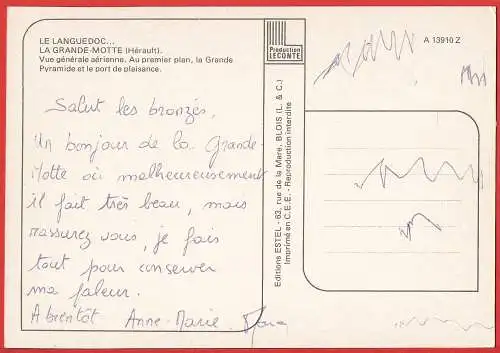 LE LANGUEDOC...
LA GRANDE-MOTTE (Hérault).
Vue générale aérienne. Au premier plan, la Grande
Pyramide et le port de plaisance.
Production
LECONTE
A 13910 Z
Salut les bronzés,
Un bonjour de la Grande-
Motte où malheureusement
il fait très beau, mais
rassurez vous, je fais
tout pour conserver
ma paleur.
A bientôt Anne-Marie.
Editions ESTEL - 63, rue de la Mare, BLOIS (L. & C.)
Imprimé en C.E.E. - Reproduction interdite